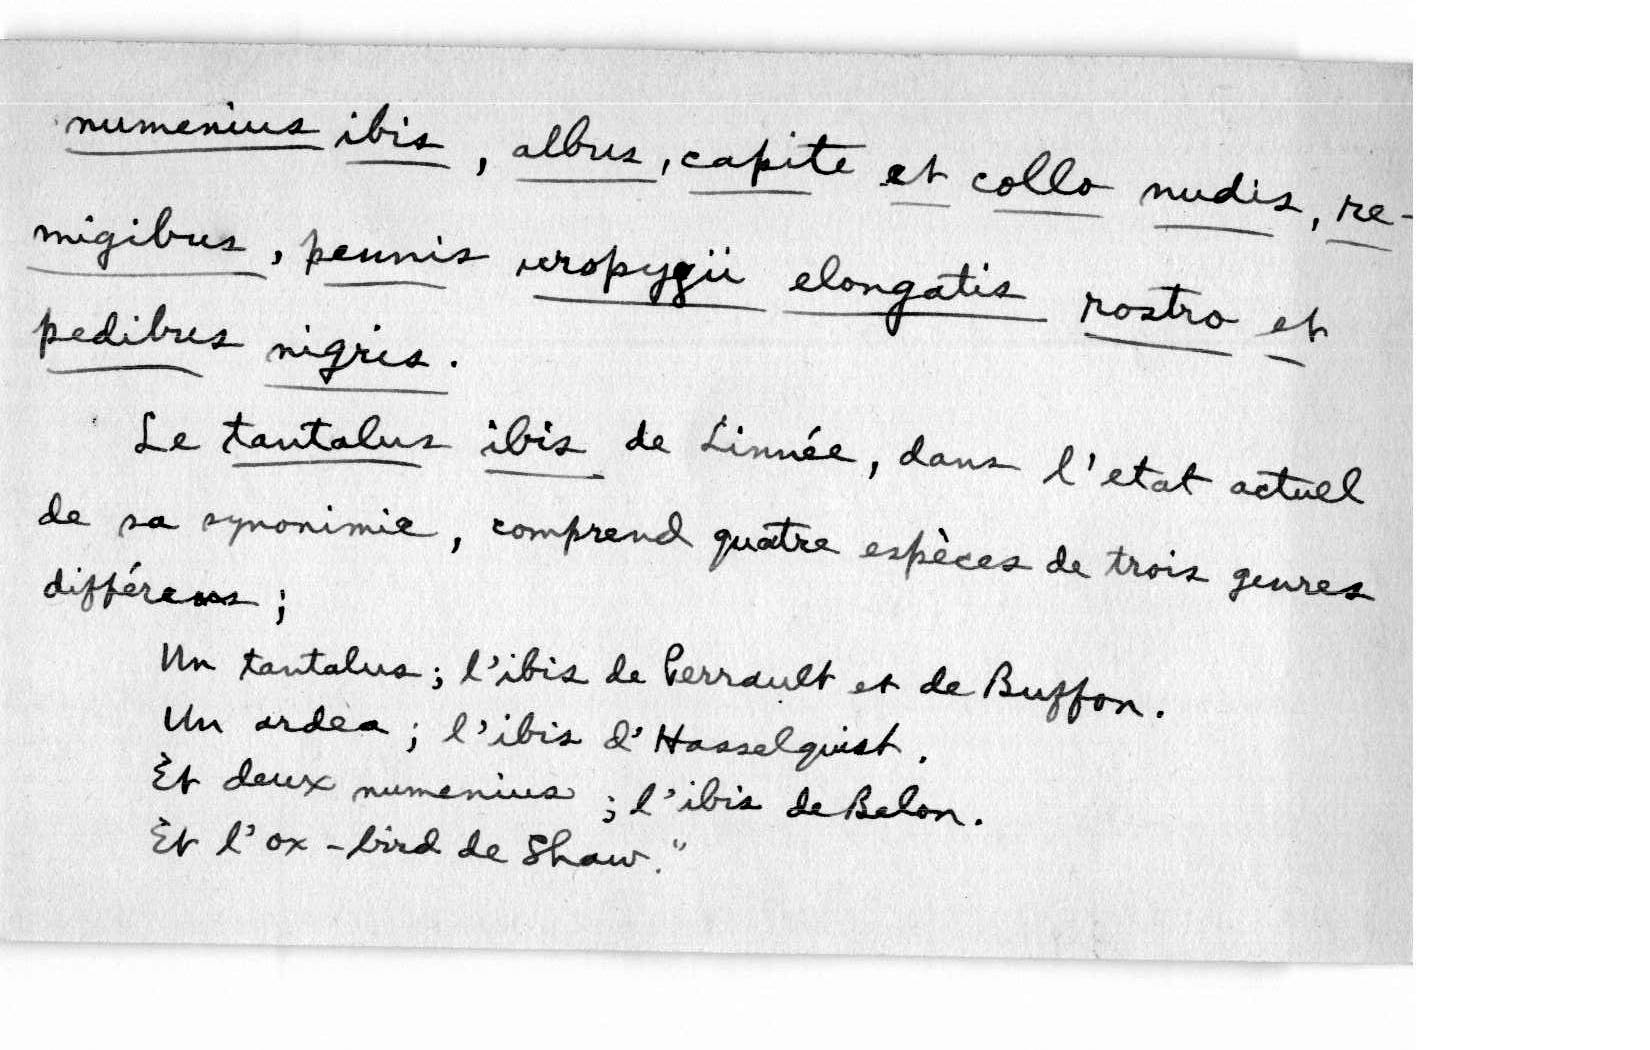 numenius ibis, albus, capite et collo nudis, re-
migibus, pennis uropygii elongatis rostro et
pedibus nigris.
Le tantalus ibis de Linnée, dans l'etat actuel
de sa synonimie, comprend quatre espèces de trois genres
différens;
Un tantalus; l'ibis de Perrault et de Buffon.
Un ardea; l'ibis d'Hasselquist.
Et deux numenius; l'ibis de Belon.
Et l'ox-bird de Shaw."